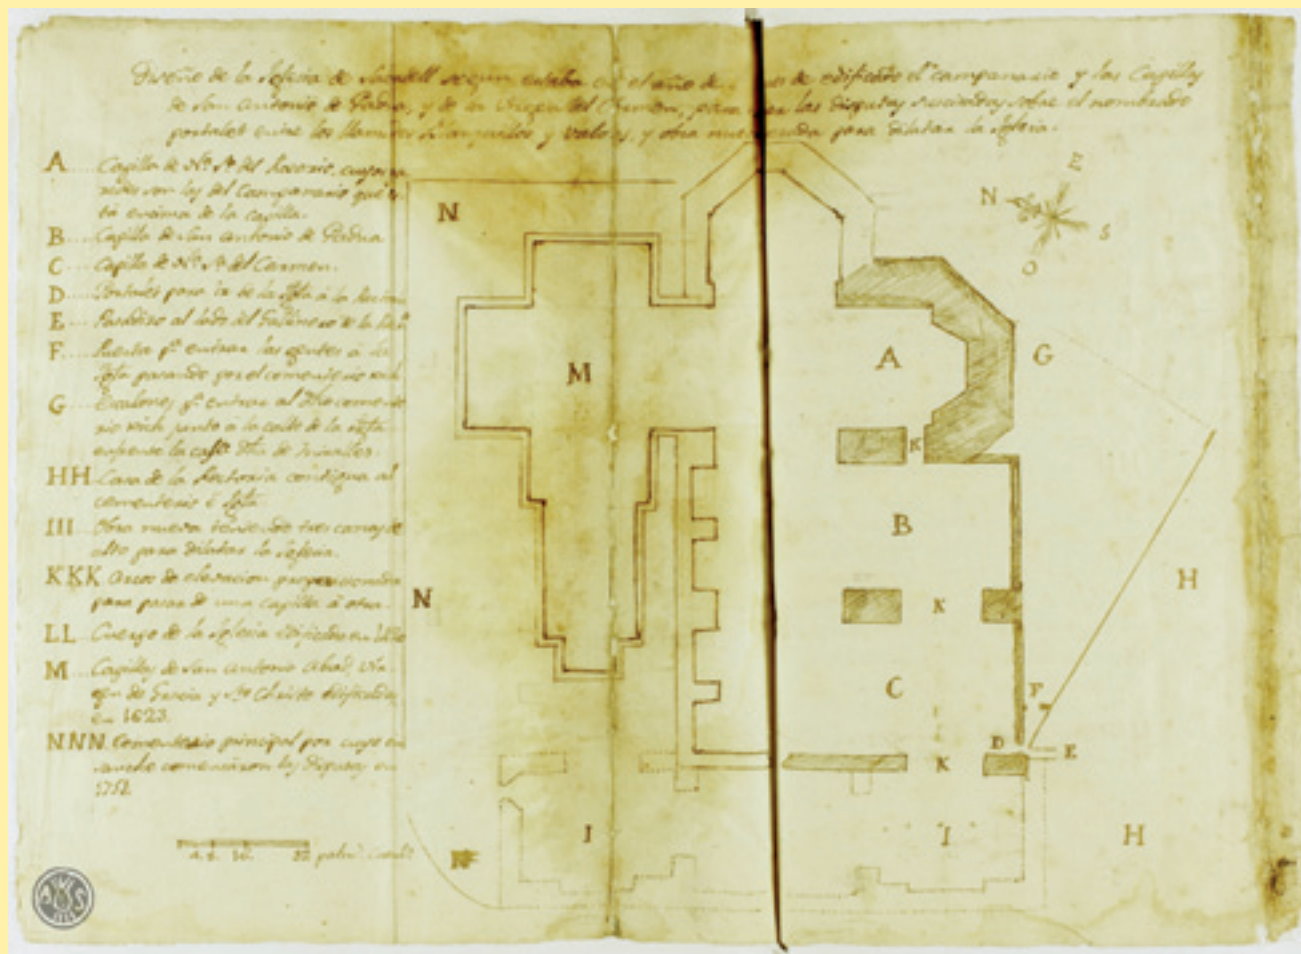 Diseño de la Iglesia de Sabadell segun estaba en el año de de edificado el campanario y las Capillas
de San Antonio de Padua, y de la Virgen del Carmen, para las disputas suscitadas sobre el nombrado
portalet entre los llamados y Valors, y otra para dilatar la Iglesia.
A Capilla de Nª Sª del Rosario, cuyas pa
redes son las del Campanario que es
tá encima de la capilla.
B Capilla de San Antonio de Padua
C Capilla de Nª Sª del Carmen.
D Portalet para ir de la Iglª á la
E Passadizo al lado del de la
F Puerta pª entrar las gentes á la
Iglª pasando por el comenterio
G Escalones pª entrar al dho comente
rio junto á la calle de la Iglª
enfrente la casª dha de Miralles.
HH Casa de la Rectoria contigua al
cementerio é Iglª
III Obra nueva de tres canas de
alto para dilatar la Iglesia.
KKK Arcos de elevacion proporcionada
para pasar de una capilla á otra.
LL Cuerpo de la Iglesia edificado en
M Capillas de San Antonio Abad, Vir
gen de Gracia y Sto Christo edificadas
en 1623.
NNN Comenterio principal por cuyo en
sanche comenzaron las disputas en
1752
4. 8. 16. 32 palms.
N
E
N
S
O
M
A
G
K
B
N
K
H
C
F
D
E
K
I
I
H
N